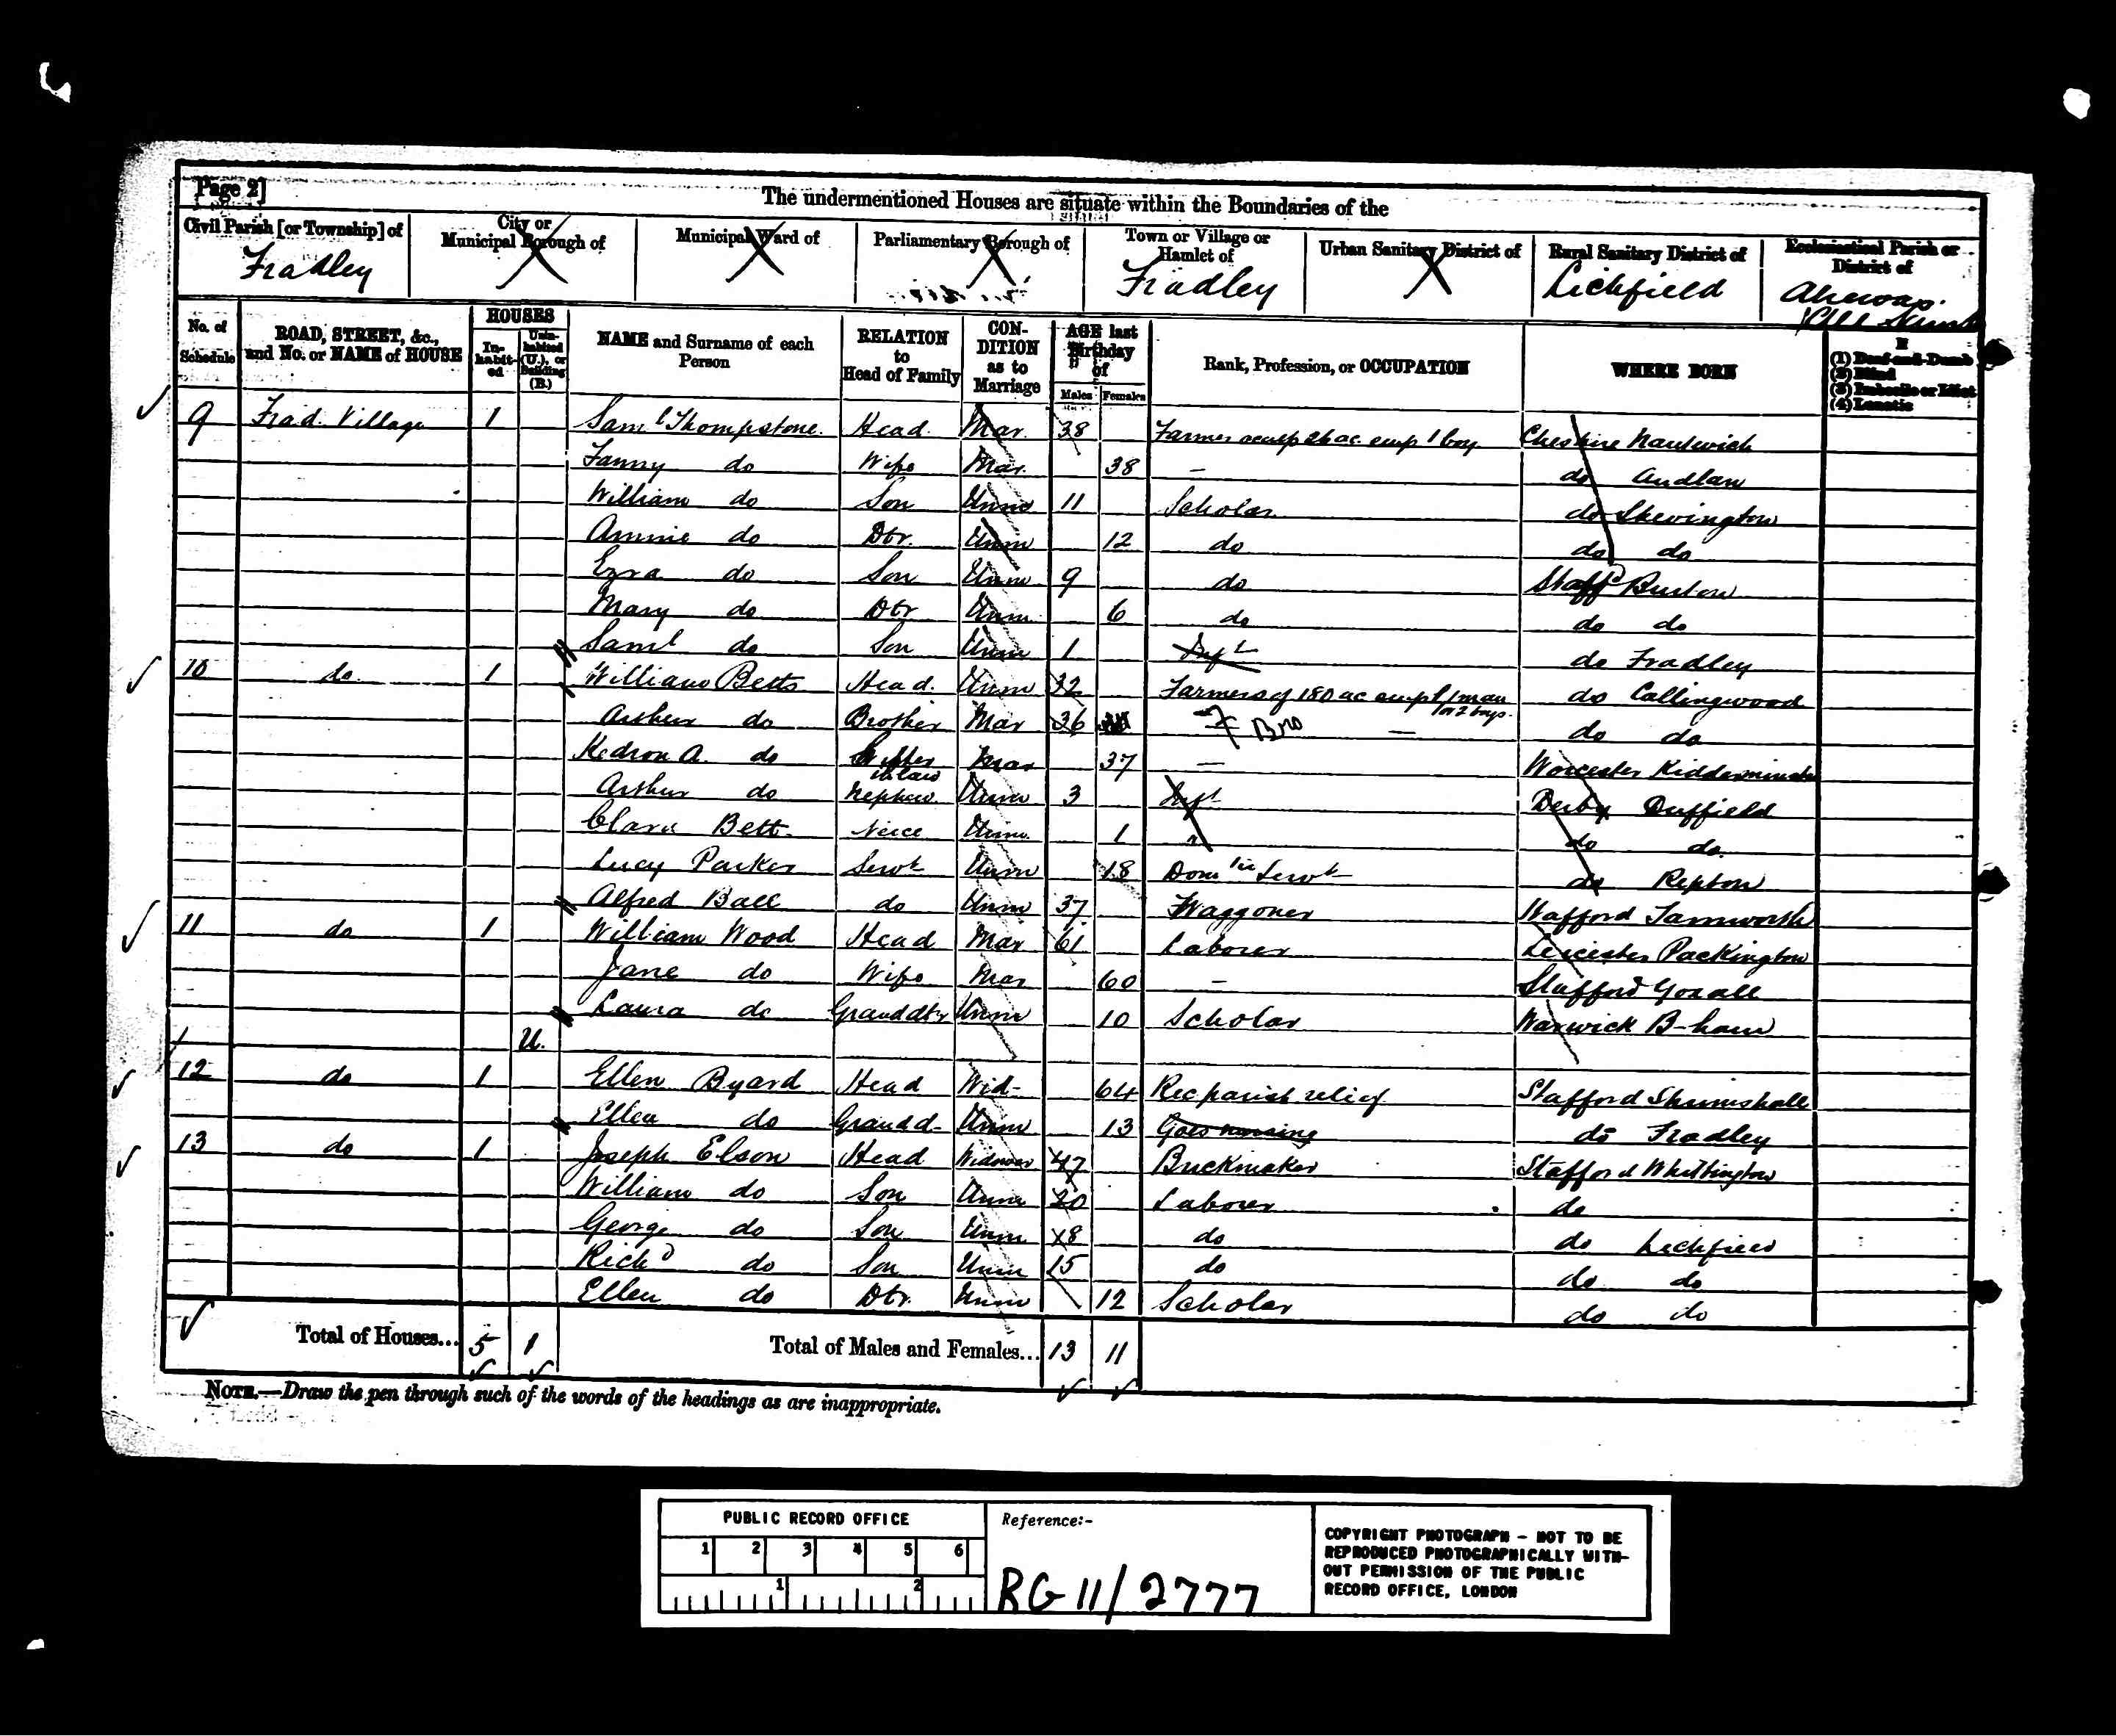 Page 2]
The undermentioned Houses are situate within the Boundaries of the
Civil Parish [or Township] of City or Municipal Borough of Municipal Ward of Parliamentary Borough of Town or Village or Hamlet of Urban Sanitary District of Rural Sanitary District of Ecclesiastical Parish or District of
Fradley Fradley Lichfield Alrewas
No. of Schedule ROAD, STREET, &c., and No. or NAME of HOUSE HOUSES Inhabited Uninhabited (U.), or Building (B.) NAME and Surname of each Person RELATION to Head of Family CONDITION as to Marriage AGE last Birthday of Males Females Rank, Profession, or OCCUPATION WHERE BORN If (1) Deaf-and-Dumb (2) Blind (3) Imbecile or Idiot (4) Lunatic
9 Frad. Village 1 Saml Thompstone Head Mar 38 Farmer occup 26 ac emp 1 boy Cheshire Nantwich
Fanny do Wife Mar 38 – do Audlam
William do Son Unm 11 Scholar do Shevington
Annie do Dtr. Unm 12 do do do
Ezra do Son Unm 9 do Staffd Burton
Mary do Dtr Unm 6 do do do
Saml do Son Unm 1 Inft do Fradley
10 do 1 William Betts Head Unm 32 Farmers of 180 ac empl 1 man or 2 boys do Callingwood
Arthur do Brother Mar 36 Bro – do do
Kedron A. do Sister in law Mar 37 – Worcester Kidderminster
Arthur do Nephew Unm 3 Inft Derby Duffield
Clara Bett Neice Unm 1 " do do
Lucy Parker Servt Unm 18 Domtic Servt do Repton
Alfred Ball do Unm 37 Waggoner Stafford Tamworth
11 do 1 William Wood Head Mar 61 Laborer Leicester Packington
Jane do Wife Mar 60 – Stafford Gorall
Laura do Granddtr Unm 10 Scholar Warwick B-ham
U.
12 do 1 Ellen Byard Head Wid- 64 Rec parish relief Stafford Shumshall
Ellen do Grandd- Unm 13 Goes nursing do Fradley
13 do 1 Joseph Elson Head Widower 47 Brickmaker Stafford Whittington
William do Son Unm 20 Laborer do
George do Son Unm 18 do do Lichfield
Richd do Son Unm 15 do do do
Ellen do Dtr. Unm 12 Scholar do do
Total of Houses... 5 1 Total of Males and Females... 13 11
NOTE.—Draw the pen through such of the words of the headings as are inappropriate.
PUBLIC RECORD OFFICE
1 2 3 4 5 6
1 2
Reference:-
RG 11/2777
COPYRIGHT PHOTOGRAPH - NOT TO BE
REPRODUCED PHOTOGRAPHICALLY WITH-
OUT PERMISSION OF THE PUBLIC
RECORD OFFICE, LONDON